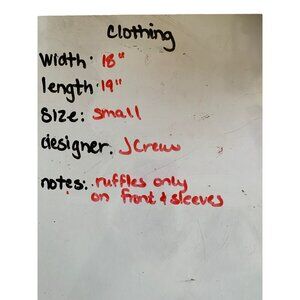 Clothing
width: 18"
length: 19"
Size: small
designer: JCrew
notes: ruffles only
on front & sleeves